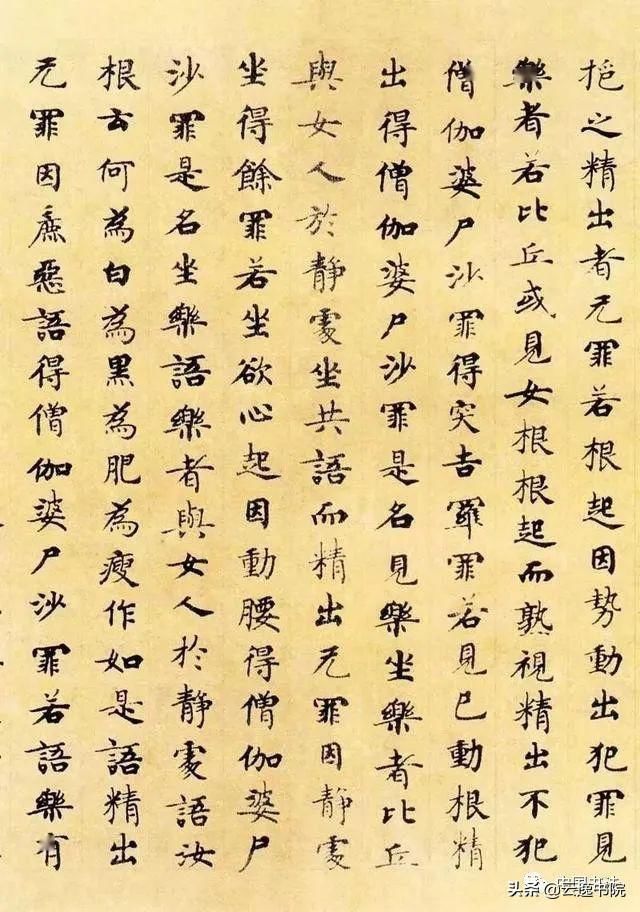 挹之精出者无罪若根起因势動出犯罪見
樂者若比丘或見女根根起而熟視精出不犯
僧伽婆尸沙罪得突吉羅罪若見已動根精
出得僧伽婆尸沙罪是名見樂坐樂者比丘
與女人於静處坐共語而精出无罪因静處
坐得餘罪若坐欲心起因動腰得僧伽婆尸
沙罪是名坐樂語樂者與女人於静處語汝
根云何為白為黒為肥為瘦作如是語精出
无罪因麁惡語得僧伽婆尸沙罪若語樂有
中国书法
头条@云逸书院